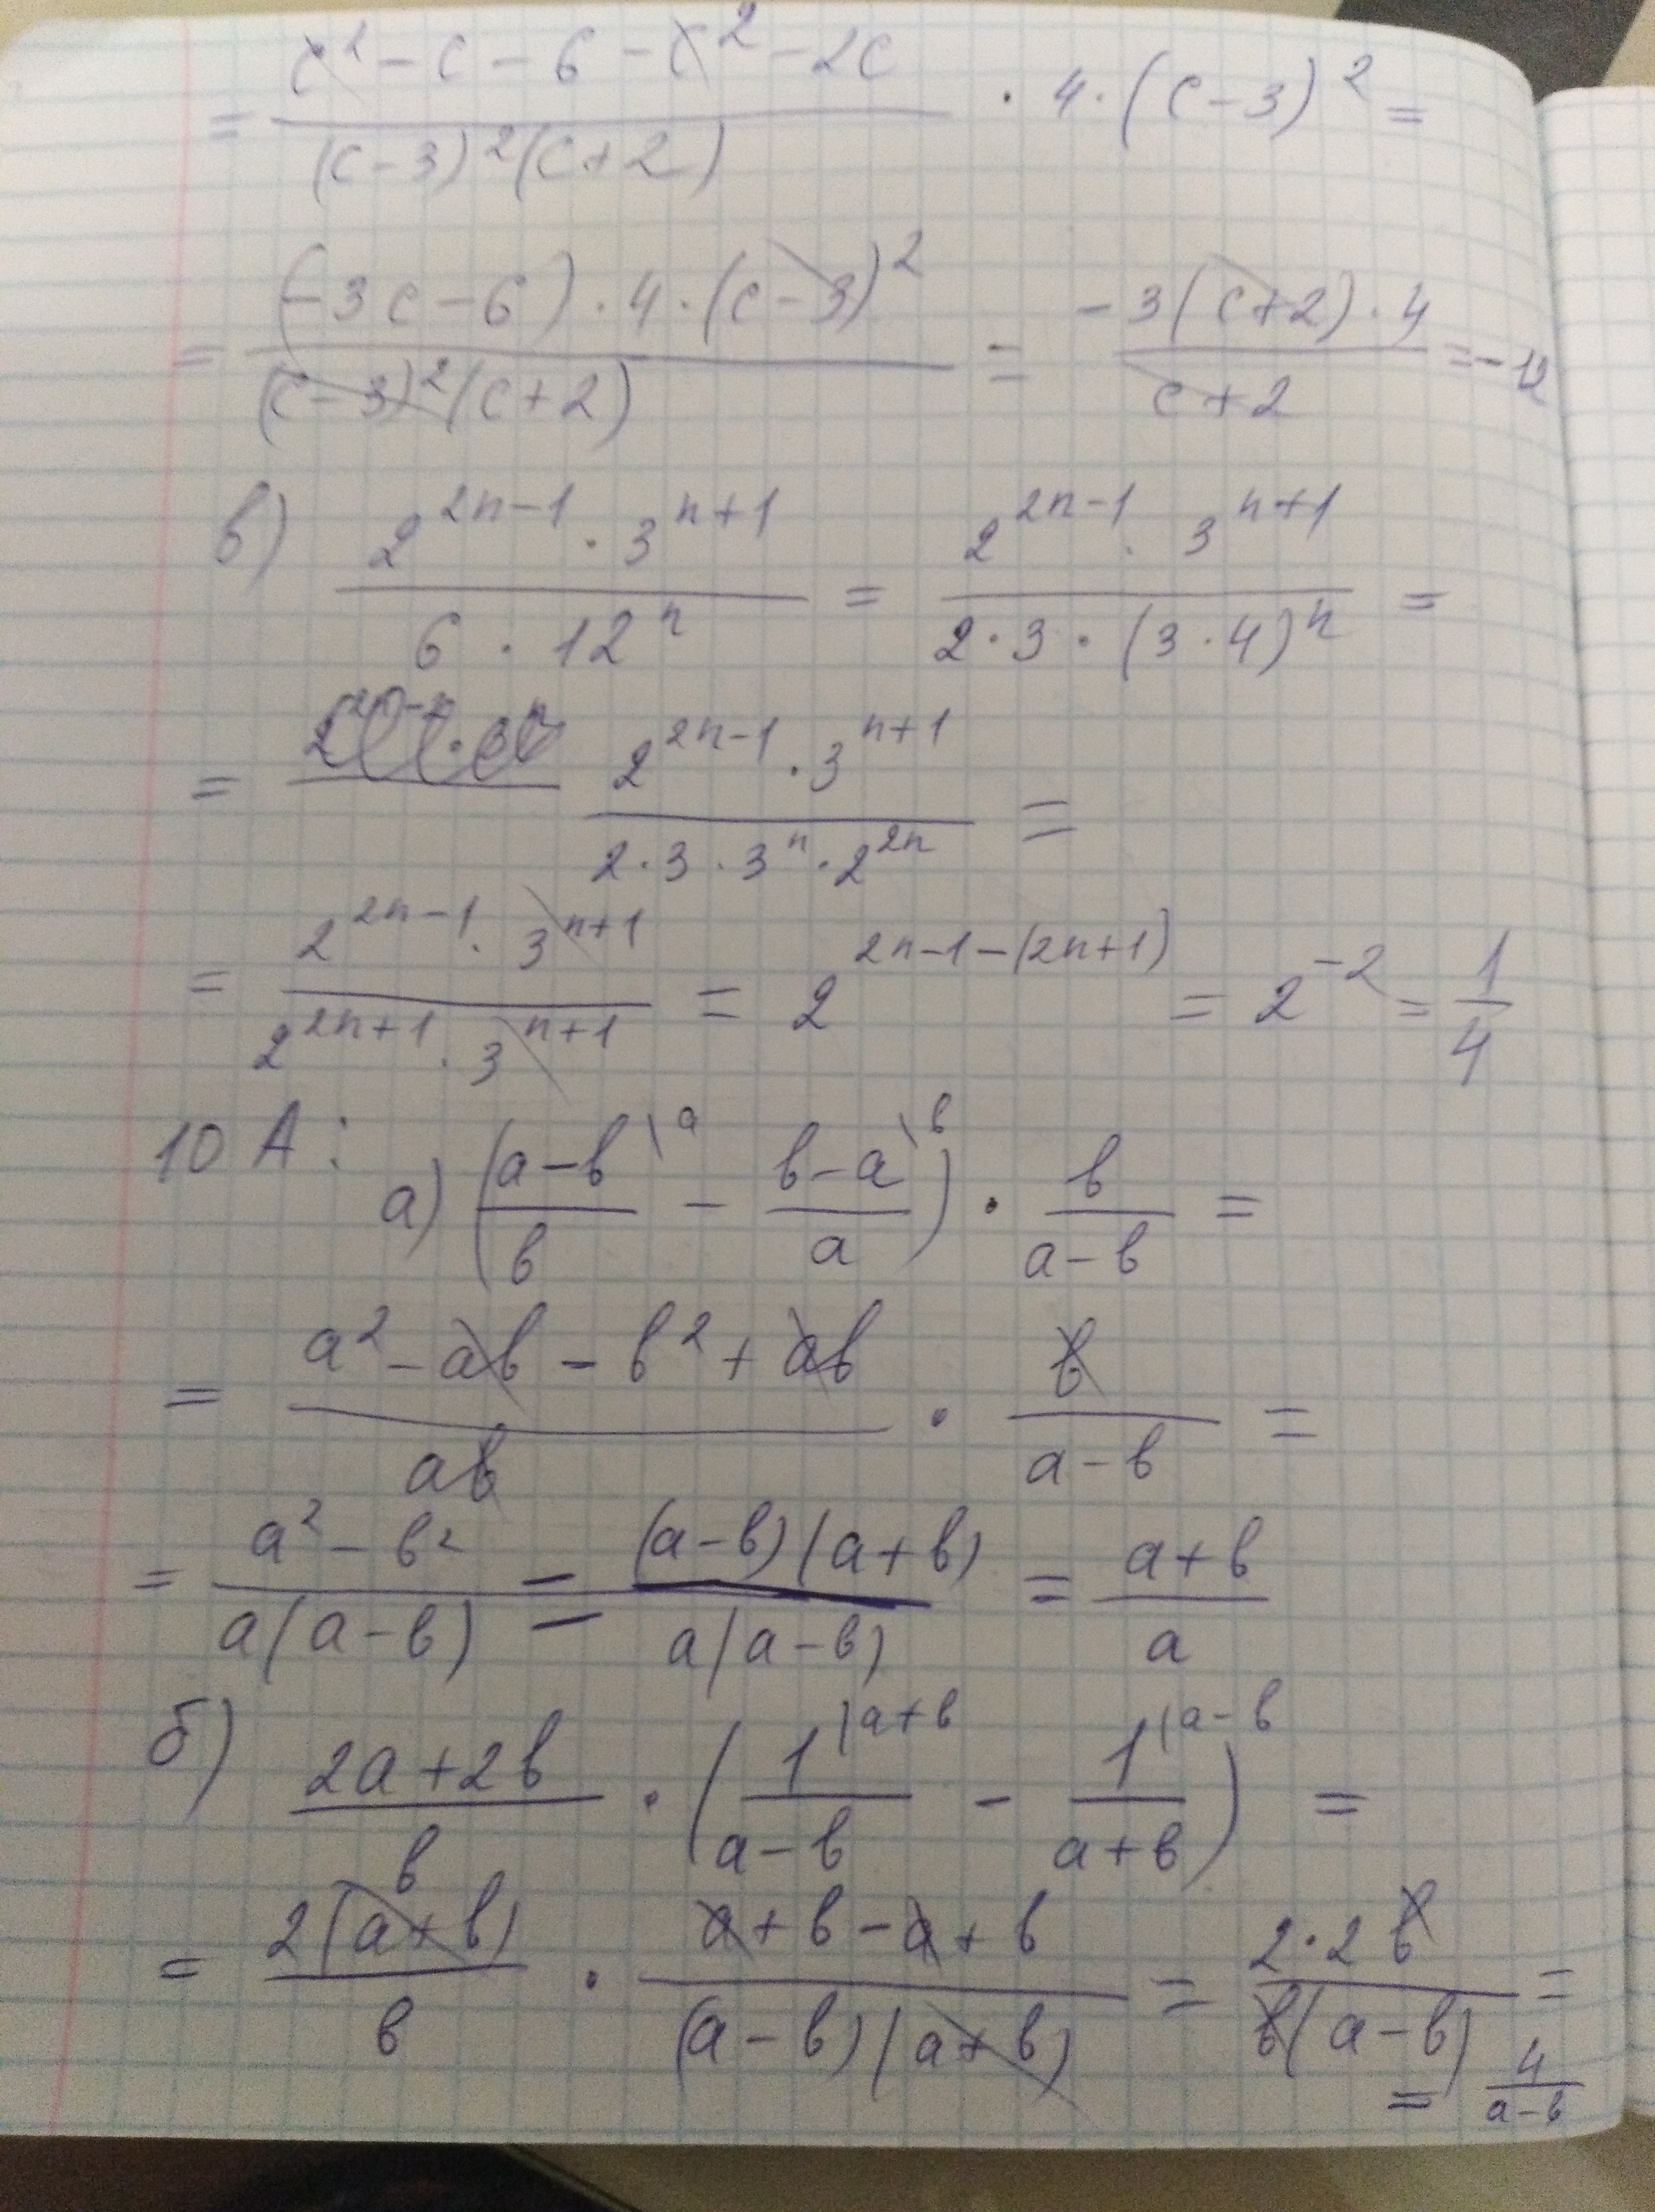 = (c² - c - 6 - c² - 2c) / ((c-3)²(c+2)) · 4·(c-3)² =
= ((-3c-6)·4·(c-3)²) / ((c-3)²(c+2)) = (-3(c+2)·4) / (c+2) = -12
в) (2^(2n-1) · 3^(n+1)) / (6 · 12^n) = (2^(2n-1) · 3^(n+1)) / (2·3·(3·4)^n) =
= (2^(2n-1) · 3^(n+1)) / (2·3·3^n·2^(2n)) =
= (2^(2n-1) · 3^(n+1)) / (2^(2n+1) · 3^(n+1)) = 2^(2n-1-(2n+1)) = 2^(-2) = 1/4
10 А:
а) ((a-b)/b \a - (b-a)/a \b) · b/(a-b) =
= (a² - ab - b² + ab)/(ab) · b/(a-b) =
= (a² - b²)/(a(a-b)) = ((a-b)(a+b))/(a(a-b)) = (a+b)/a
б) (2a+2b)/b · (1/(a-b) |a+b - 1/(a+b) |a-b) =
= (2(a+b))/b · (a+b-a+b)/((a-b)(a+b)) = (2·2b)/(b(a-b)) =
= 4/(a-b)